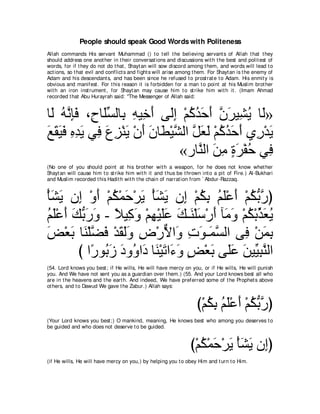 People should speak Good Words with Politeness
Allah commands His servant Muhammad () to tell the believing servants of Allah that they
should address one another in their conversations and discussions with the best and politest of
words, for if they do not do that, Shaytan will sow discord among them, and words will lead to
actions, so that evil and conflicts and fights will arise among them. For Shaytan is the enemy of
Adam and his descendants, and has been since he refused to prostrate to Adam. His enmity is
obvious and manifest. For this reason it is forbidden for a man to point at his Muslim brother
with an iron instrument, for Shaytan may cause him to strike him with it. (Imam Ahmad
recorded that Abu Hurayrah said: "The Messenger of Allah said:
«لَا يُشِيرَنَّ أَحَدُكُمْ إِلَى أَخِيهِ بِالسِّلَاحِ، فَإِنَّهُ لَا
يَدْرِي أَحَدُكُمْ لَعَلَّ الشَّيْطَانَ أَنْ يَنْزِعَ فِي يَدِهِ فَيَقَعَ
فِي حُفْرَةٍ مِنَ النَّار»
(No one of you should point at his brother with a weapon, for he does not know whether
Shaytan will cause him to strike him with it and thus be thrown into a pit of Fire.) Al-Bukhari
and Muslim recorded this Hadith with the chain of narration from `Abdur-Razzaq.
(رَّبُّكُمْ أَعْلَمُ بِكُمْ إِن يَشَأْ يَرْحَمْكُمْ أَوْ إِن يَشَأْ
يُعَذِّبْكُمْ وَمَآ أَرْسَلْنَـكَ عَلَيْهِمْ وَكِيلاً - وَرَبُّكَ أَعْلَمُ
بِمَن فِى السَّمَـوَتِ وَالاٌّرْضِ وَلَقَدْ فَضَّلْنَا بَعْضَ
النَّبِيِّينَ عَلَى بَعْضٍ وَءَاتَيْنَا دَاوُودَ زَبُورًا )
(54. Lord knows you best; if He wills, He will have mercy on you, or if He wills, He will punish
you. And We have not sent you as a guardian over them.) (55. And your Lord knows best all who
are in the heavens and the earth. And indeed, We have preferred some of the Prophets above
others, and to Dawud We gave the Zabur.) Allah says:
(رَّبُّكُمْ أَعْلَمُ بِكُمْ)
(Your Lord knows you best;) O mankind, meaning, He knows best who among you deserves to
be guided and who does not deserve to be guided.
(إِن يَشَأْ يَرْحَمْكُمْ)
(if He wills, He will have mercy on you,) by helping you to obey Him and turn to Him.